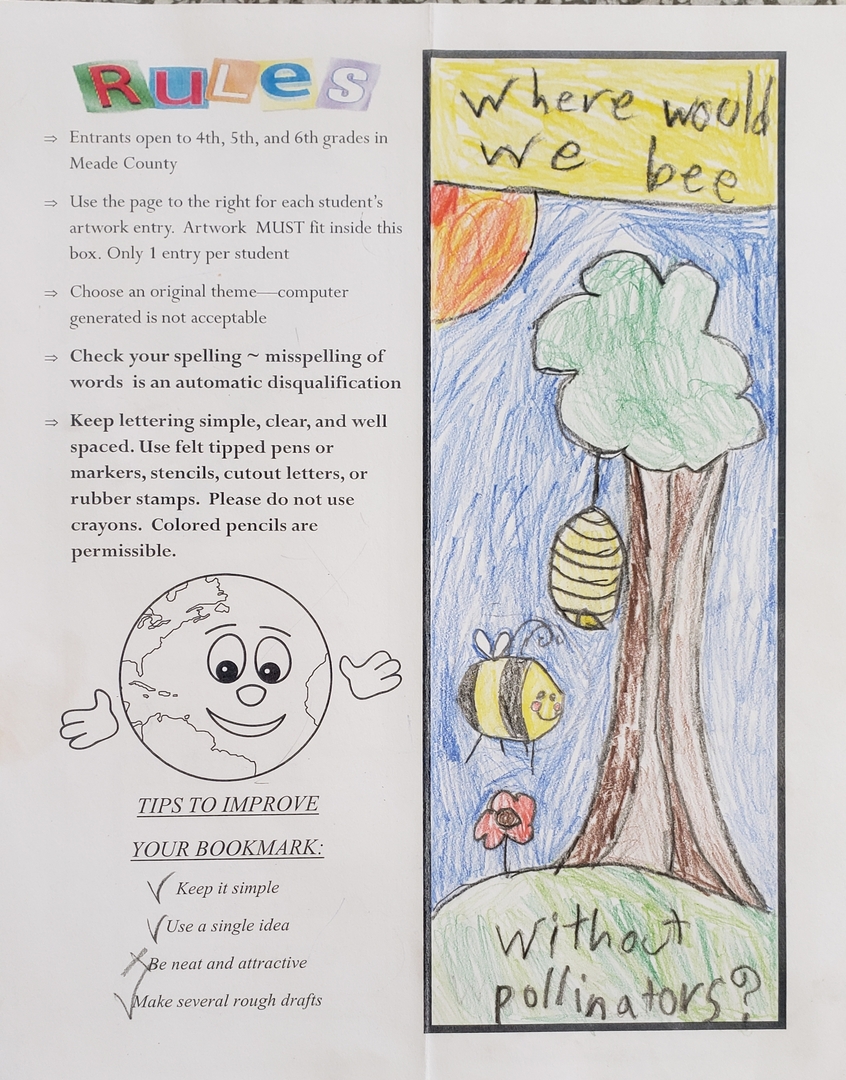 RuLeS
⇒ Entrants open to 4th, 5th, and 6th grades in
Meade County
⇒ Use the page to the right for each student's
artwork entry. Artwork MUST fit inside this
box. Only 1 entry per student
⇒ Choose an original theme—computer
generated is not acceptable
⇒ Check your spelling ~ misspelling of
words is an automatic disqualification
⇒ Keep lettering simple, clear, and well
spaced. Use felt tipped pens or
markers, stencils, cutout letters, or
rubber stamps. Please do not use
crayons. Colored pencils are
permissible.
TIPS TO IMPROVE
YOUR BOOKMARK:
Keep it simple
Use a single idea
Be neat and attractive
Make several rough drafts
Where would
we bee
without
pollinators?